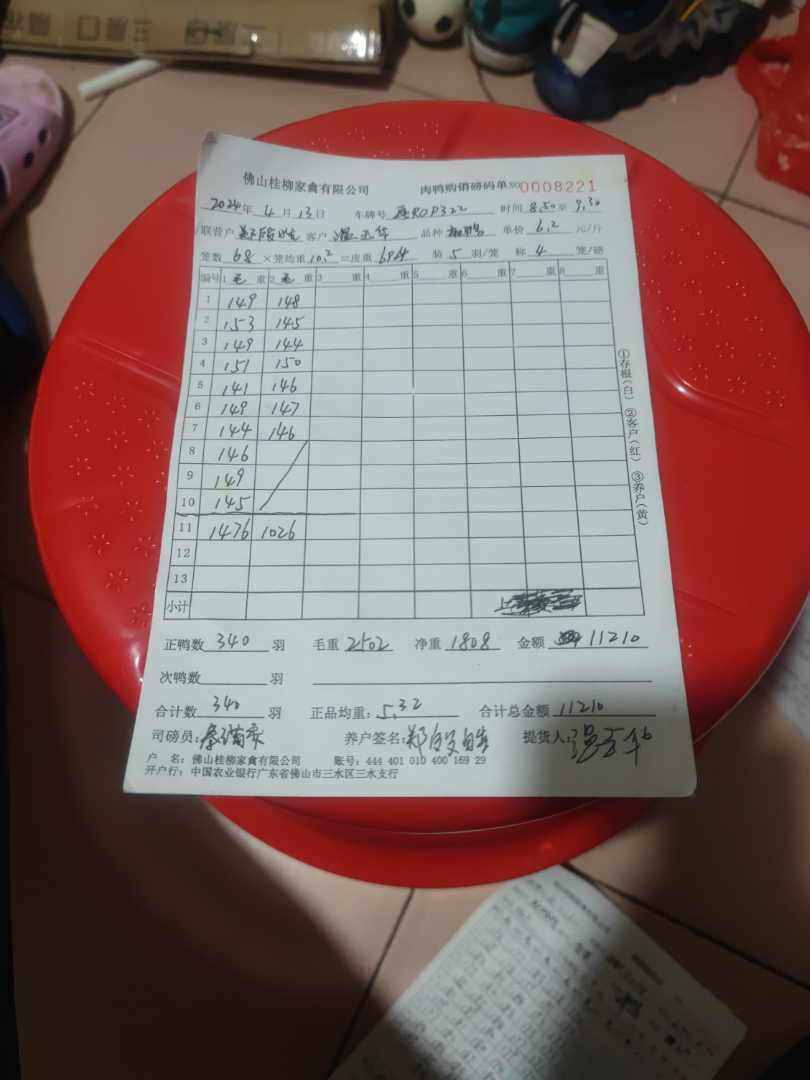 佛山桂柳家禽有限公司 肉鸭购销磅码单 NO 0008221
2024年 4月13日 车牌号 R0P322 时间 8.50至9.30
联营户 客户 品种 单价 6.2 元/斤
笼数 68 ×笼均重 10.2 =皮重 694 装 5 羽/笼 称 4 笼/磅
编号 1 毛 重 2 毛 重 3 重 4 重 5 重 6 重 7 重 8 重
1 149 148
2 153 145
3 149 144
4 151 150
5 141 146
6 149 147
7 144 146
8 146
9 149
10 145
11 1476 1026
12
13
小计
正鸭数 340 羽 毛重 2502 净重 1808 金额 11210
次鸭数 羽
合计数 340 羽 正品均重: 5.32 合计总金额 11210
司磅员: 养户签名: 提货人:
户 名: 佛山桂柳家禽有限公司 账号: 444 401 010 400 169 29
开户行: 中国农业银行广东省佛山市三水区三水支行
①存根(白) ②客户(红) ③养户(黄)